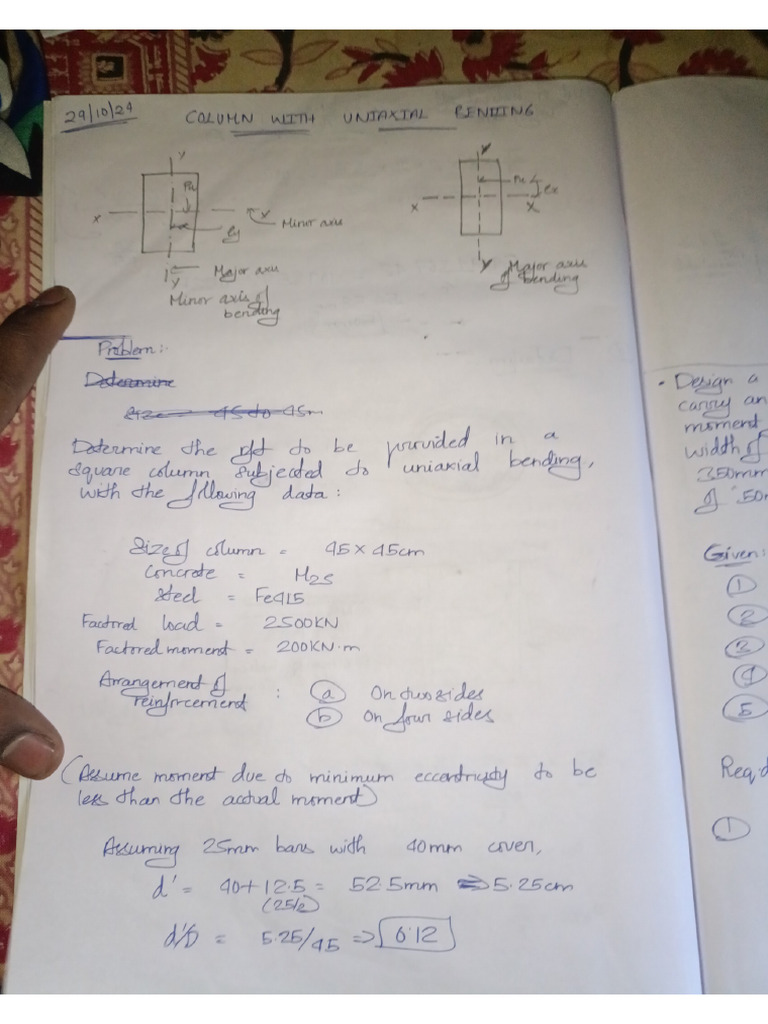 29/10/24
COLUMN WITH UNIAXIAL BENDING
y
Pu
x
x Minor axis
ey
y Major axis
Minor axis of
bending
y
Pu ex
x
x
y Major axis
of bending
Problem:-
Determine
Size = 45 to 45m
Determine the rft to be provided in a
square column subjected to uniaxial bending,
with the following data:
Size of column = 45 × 45cm
Concrete = M25
Steel = Fe415
Factored load = 2500KN
Factored moment = 200KN·m
Arrangement of
reinforcement : (a) On two sides
(b) On four sides
(Assume moment due to minimum eccentricity to be
less than the actual moment)
Assuming 25mm bars with 40mm cover,
d' = 40+12.5 = 52.5mm => 5.25cm
(25/2)
d'/D = 5.25/45 => 0.12
• Design a
carry an
moment
width of
350mm
of 50
Given:
1
2
3
4
5
Req.d
1